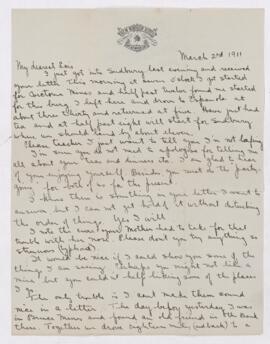 March 2nd 1911
My dearest Lois
I just got into Sudbury last evening and received
your letter. This morning at seven o'clock I got started
for Crotona Mines and half past twelve found me started
for this burg. I left here and drove to Espanola at
about three thirty and returned at five. Have just had
tea and at half past eight will start for Sudbury
where we should land by about eleven.
Please teacher I just want to tell you I'm not laping
I'm sure you do not need to apologize for telling me
all about your teas and dinners etc. I am glad to hear
of you enjoying yourself. Besides you must do the party
for both of us for the present.
I knew there is something in your letter I want to
answer but I can not get hold of it without disturbing
the order of things. Yes I will
I note the cure your Mother had to take for that
trouble with her nose. Please don't you try anything so
strenuous (typhoid)
It would be nice if I could show you some of the
things I am seeing. Perhaps you might not like a
mine but you couldn't help liking some of the places
I go.
The only trouble is I can't make them sound
nice in a letter. The day before yesterday I was
in Bruce Mines and found an old friend in the Bank
there. Together we drove eighteen miles (and back) to a